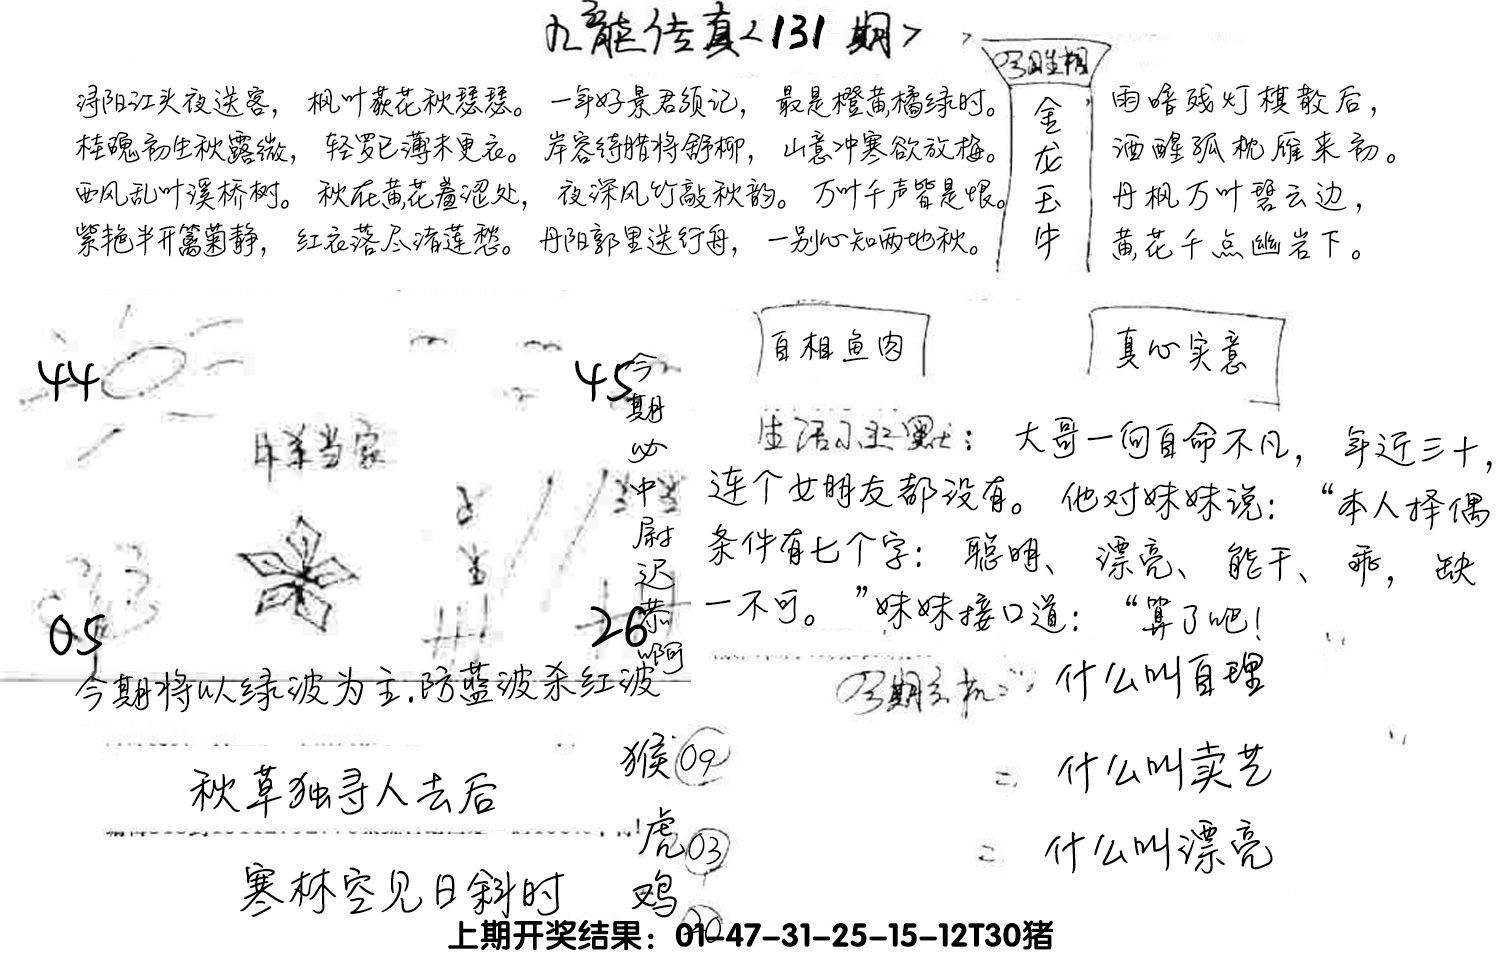 九龙传真<131期>
浔阳江头夜送客，枫叶荻花秋瑟瑟。一年好景君须记，最是橙黄橘绿时。
桂魄初生秋露微，轻罗已薄未更衣。岸容待腊将舒柳，山意冲寒欲放梅。
西风乱叶溪桥树。秋在黄花羞涩处，夜深风竹敲秋韵。万叶千声皆是恨。
紫艳半开篱菊静，红衣落尽渚莲愁。丹阳郭里送行舟，一别心知两地秋。
金龙玉牛
雨暗残灯棋散后，
酒醒孤枕雁来初。
丹枫万叶碧云边，
黄花千点幽岩下。
44
45
今期必中尉迟恭啊
当家
05
26
今期将以绿波为主.防蓝波杀红波
自相鱼肉
真心实意
生活小幽默：大哥一向自命不凡，年近三十，
连个女朋友都没有。他对妹妹说："本人择偶
条件有七个字：聪明、漂亮、能干、乖，缺
一不可。"妹妹接口道："算了吧！
今期玄机
什么叫自理
= 什么叫卖艺
= 什么叫漂亮
秋草独寻人去后
寒林空见日斜时
猴09
虎03
鸡20
上期开奖结果：01-47-31-25-15-12T30猪